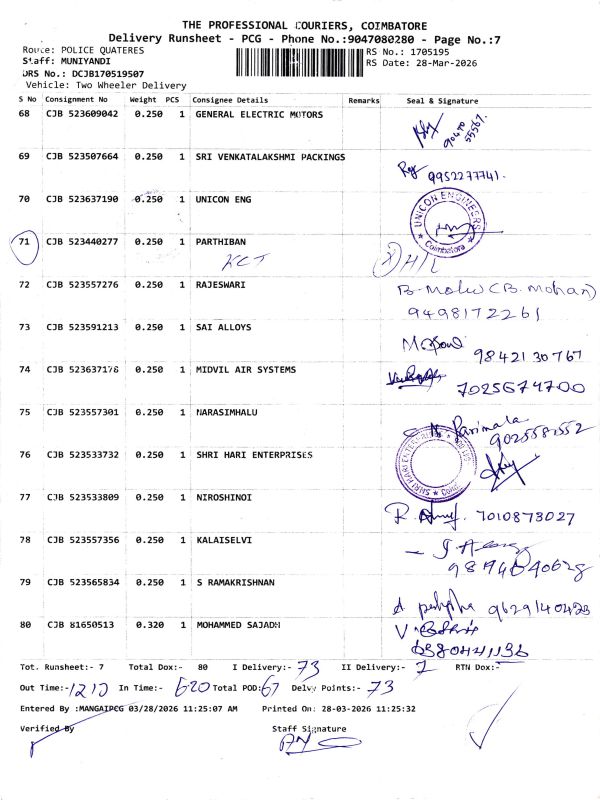 THE PROFESSIONAL COURIERS, COIMBATORE
Delivery Runsheet - PCG - Phone No.:9047080280 - Page No.:7
Route: POLICE QUATERES
RS No.: 1705195
Staff: MUNIYANDI
RS Date: 28-Mar-2026
DRS No.: DCJB170519507
Vehicle: Two Wheeler Delivery
S No Consignment No Weight PCS Consignee Details Remarks Seal & Signature
68 CJB 523609042 0.250 1 GENERAL ELECTRIC MOTORS
69 CJB 523507664 0.250 1 SRI VENKATALAKSHMI PACKINGS
9952277741.
70 CJB 523637190 0.250 1 UNICON ENG
UNICON ENGINEERS
Coimbatore
71 CJB 523440277 0.250 1 PARTHIBAN
KCT
72 CJB 523557276 0.250 1 RAJESWARI
(B. Mohan)
9498172261
73 CJB 523591213 0.250 1 SAI ALLOYS
98421 30767
74 CJB 523637176 0.250 1 MIDVIL AIR SYSTEMS
7025674700
75 CJB 523557301 0.250 1 NARASIMHALU
Parimala
9025581552
76 CJB 523533732 0.250 1 SHRI HARI ENTERPRISES
SHRI HARI ENTERPRISES
77 CJB 523533809 0.250 1 NIROSHINOI
7010873027
78 CJB 523557356 0.250 1 KALAISELVI
79 CJB 523565834 0.250 1 S RAMAKRISHNAN
80 CJB 81650513 0.320 1 MOHAMMED SAJADH
Tot. Runsheet:- 7 Total Dox:- 80 I Delivery:- 73 II Delivery:- 7 RTN Dox:-
Out Time:- 1210 In Time:- 620 Total POD: 67 Delvy Points:- 73
Entered By :MANGAIPCG 03/28/2026 11:25:07 AM Printed On: 28-03-2026 11:25:32
Verified By Staff Signature